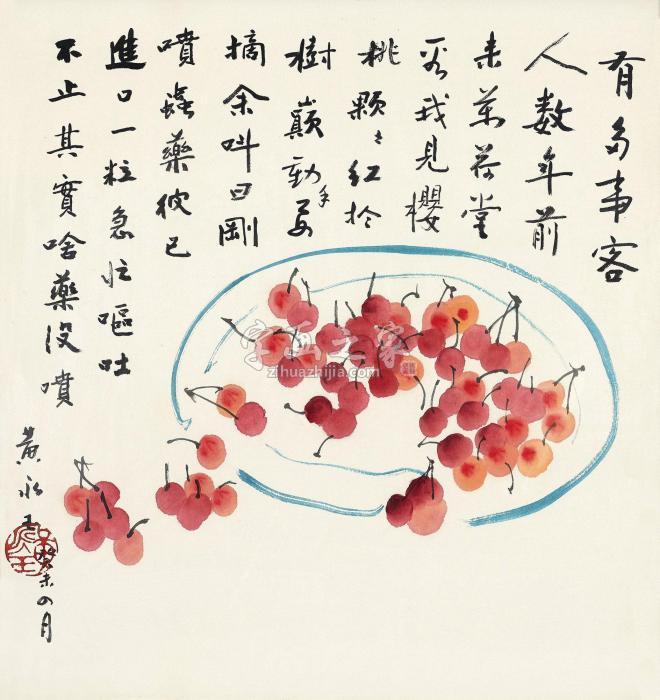 有多事客
人数年前
来萬荷堂
我見櫻
桃顆〻紅於
樹巔動手妄
摘余叫曰剛
噴蟲藥彼已
進口一粒急忙嘔吐
不止其實啥藥没噴
黄永玉
癸未四月
字画之家
zihuazhijia.com